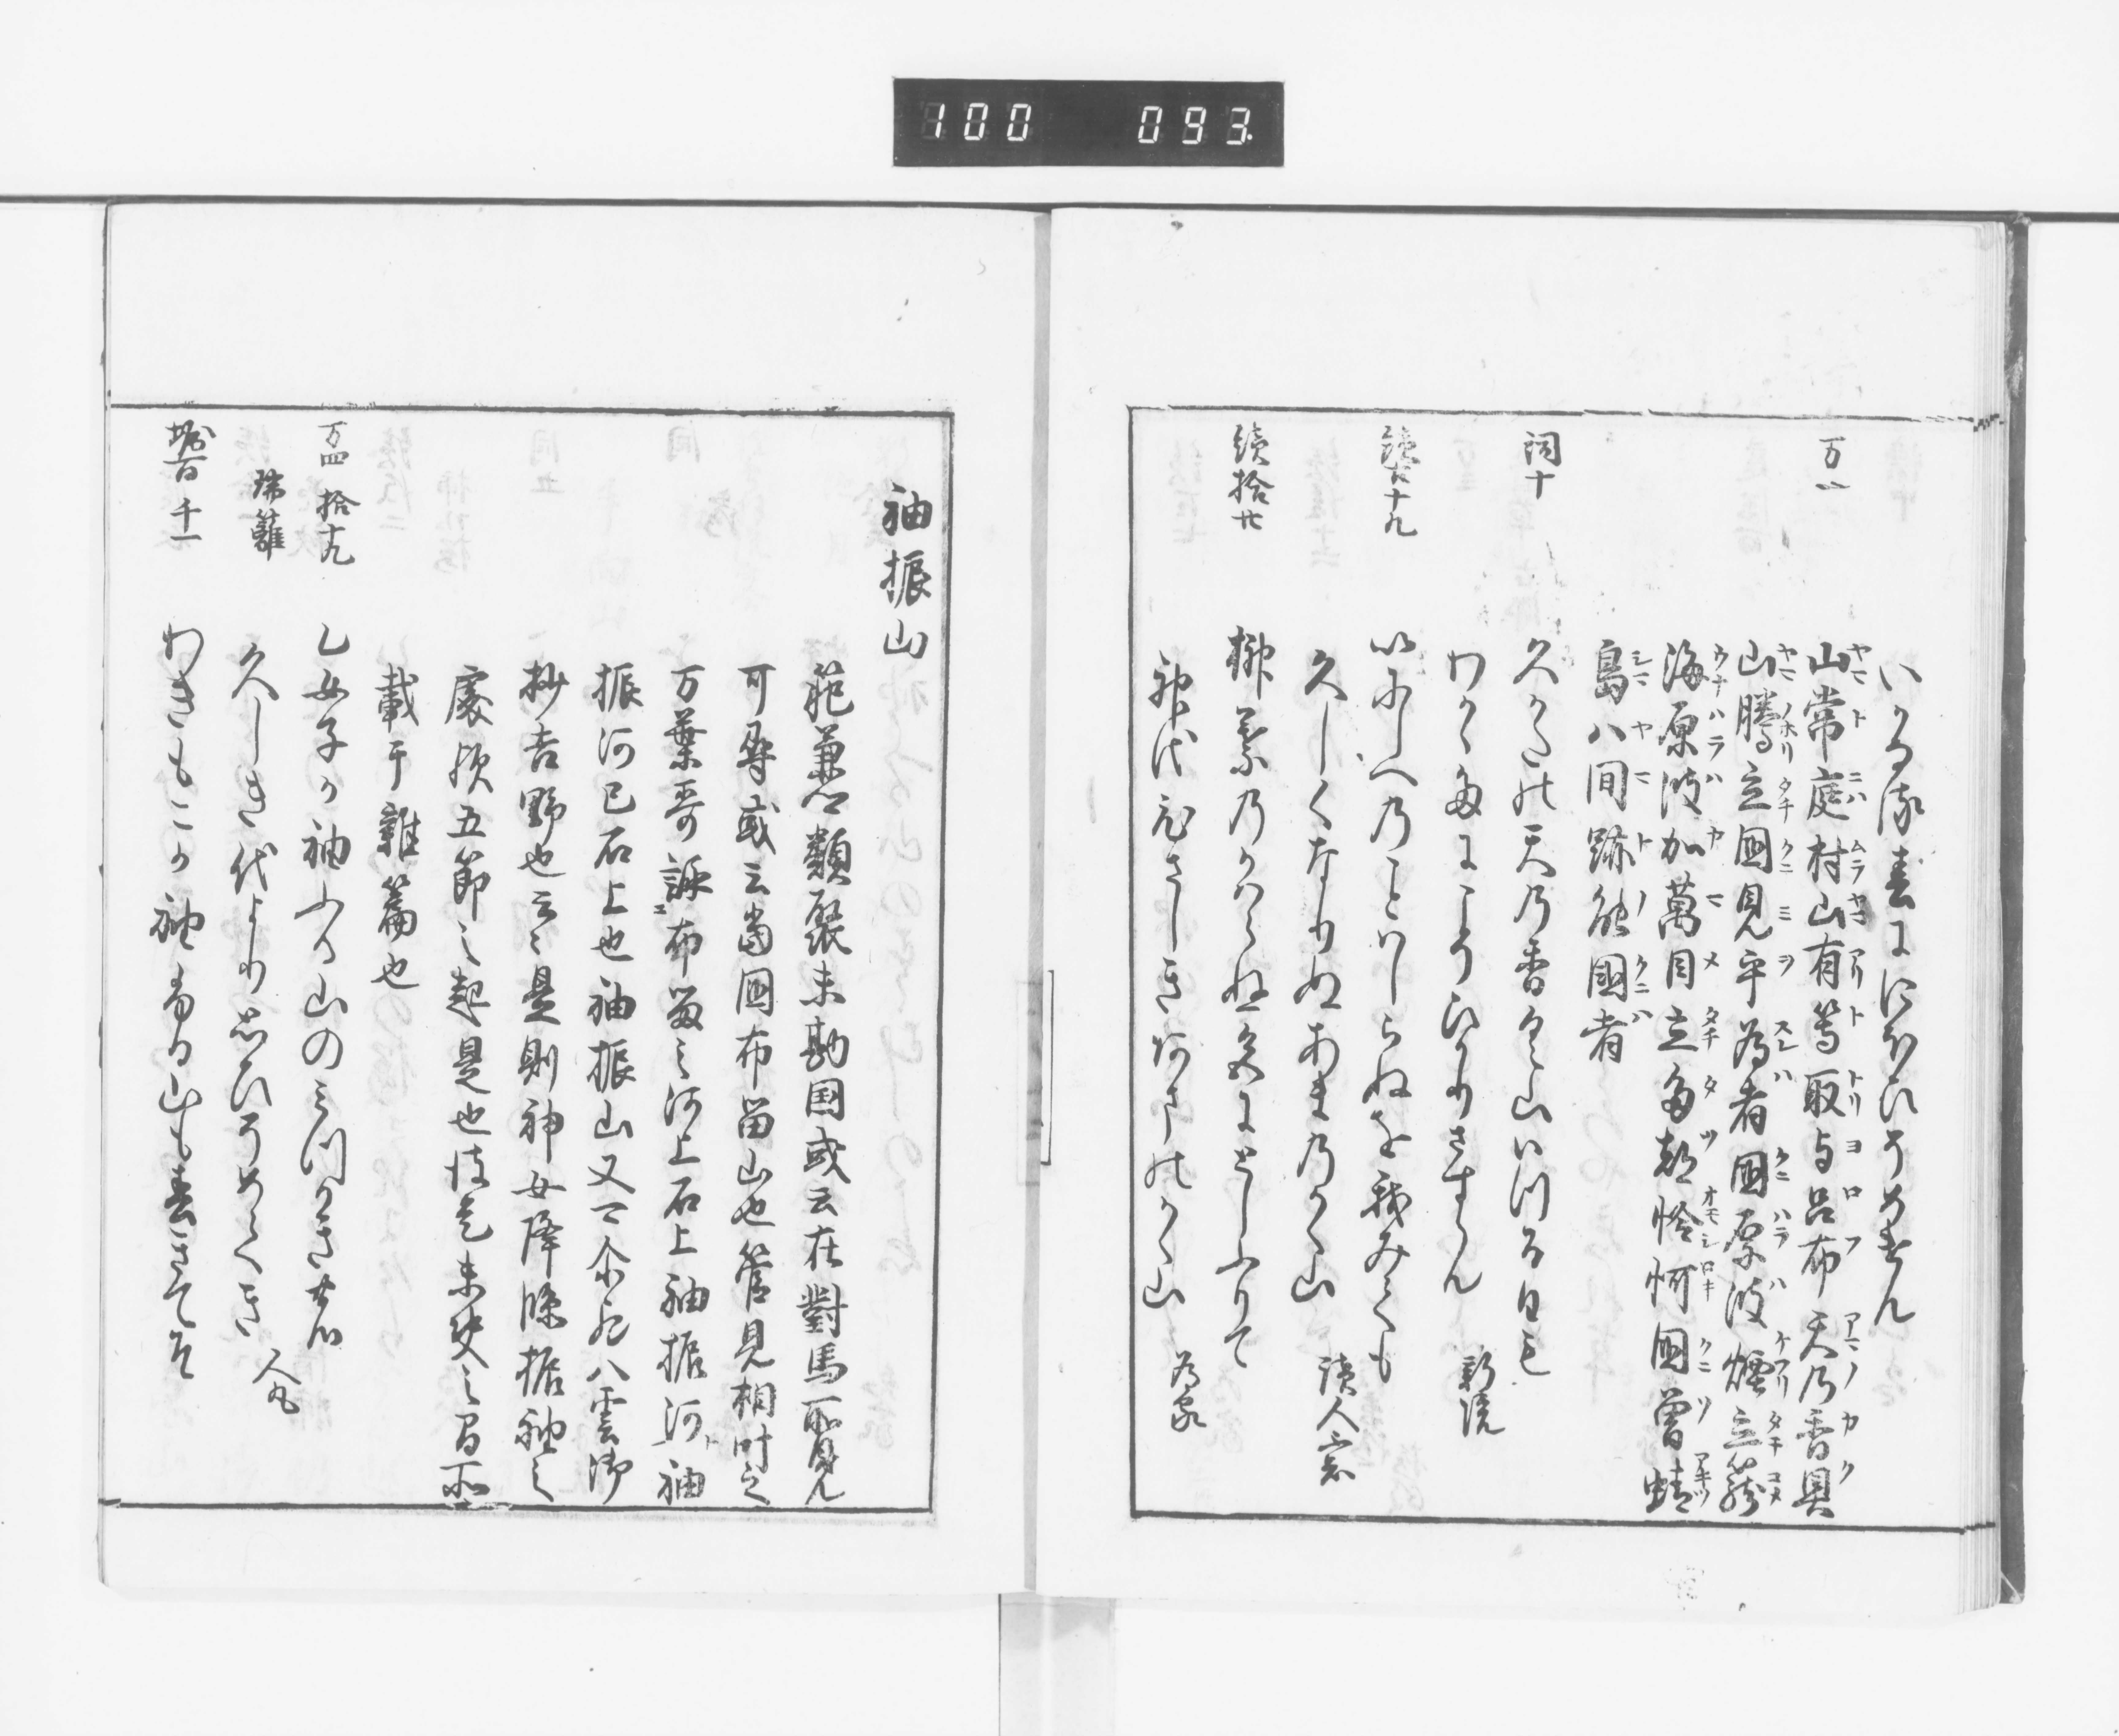 100 093
いつる我春ににほひそめけん
万一 山常庭村山有等取与呂布天乃香具
山騰立国見乎為者国原波煙立籠
海原波加萬目立多都怜𪫧国曽蜻
島八間跡能国者
詞十 久かたの天乃香具山いつる日も
わかかたにこそひかりさすらん 新院
続古十九 いにしへのことはしらぬを我みても
久しくなりぬあまのかく山 読人不知
続拾廿 榊葉のかはらぬ色にとしふりて
神代ひさしきあまのかく山 為家
袖振山
範兼卿類聚未勘国或云在對馬所見
可尋或云当国布留山也管見相叶之
万葉哥詠布留之河上石上袖振河袖
振河已石上也袖振山又可尒歟八雲御
抄吉野也云々是則神女降臨振袖之
處歟五節之起是也彼是未決之間所
載于雑篇也
万四 拾十九 乙女子か袖ふる山のみつかきの
瑞籬 久しき代より思ひそめてき 人丸
堀百 千一 わきもこか袖ふる山も春きてそ